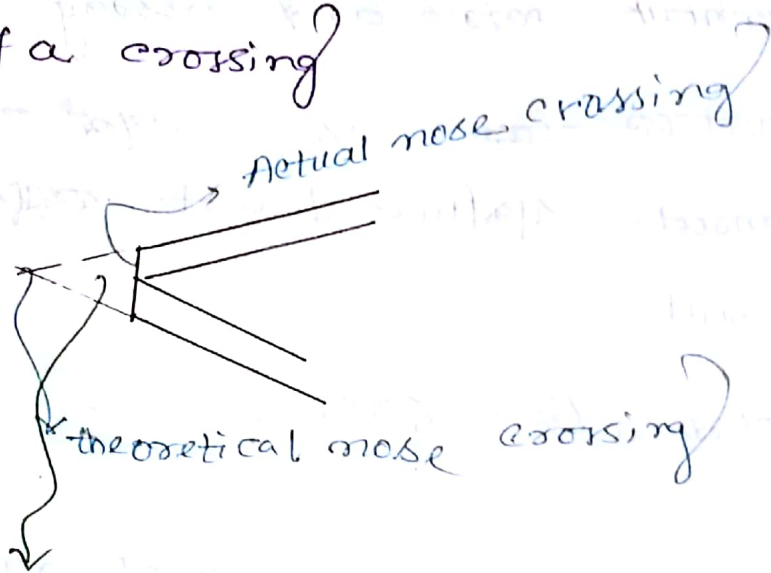 a crossing
Actual nose crossing
theoretical nose crossing